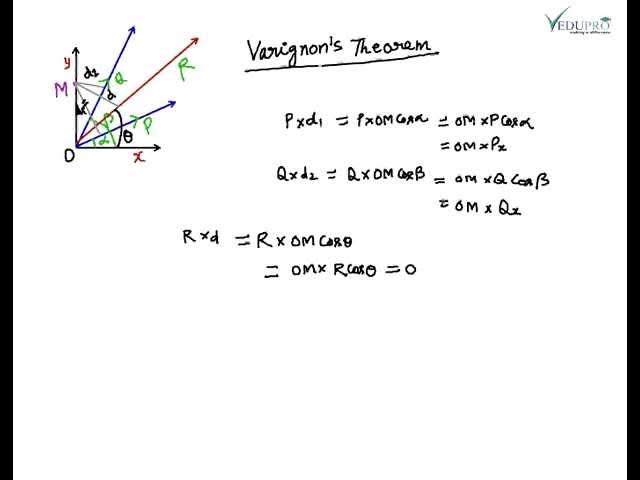 VEDUPRO
making a difference
Varignon's Theorem
y
M
d2
Q
d
R
d1
β
P
α
θ
O
x
P×d1 = P×OM Cosα = OM × P Cosα
= OM × Px
Q×d2 = Q × OM Cosβ = OM × Q Cosβ
= OM × Qx
R×d = R × OM Cosθ
= OM × R Cosθ = O